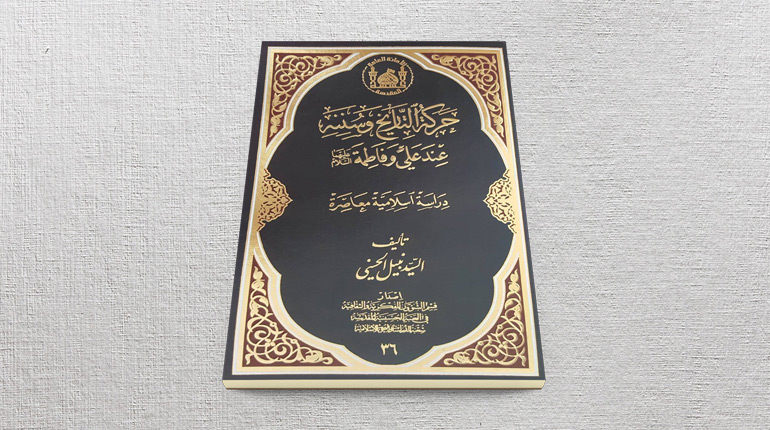 الأمانة العامة
المقدسة
حركة التاريخ وسننه
عند علي وفاطمة عليهما السلام
دراسة اسلامية معاصرة
تأليف
السيد نبيل الحسني
إصدار
قسم الشؤون الفكرية والثقافية
في العتبة الحسينية المقدسة
٣٦